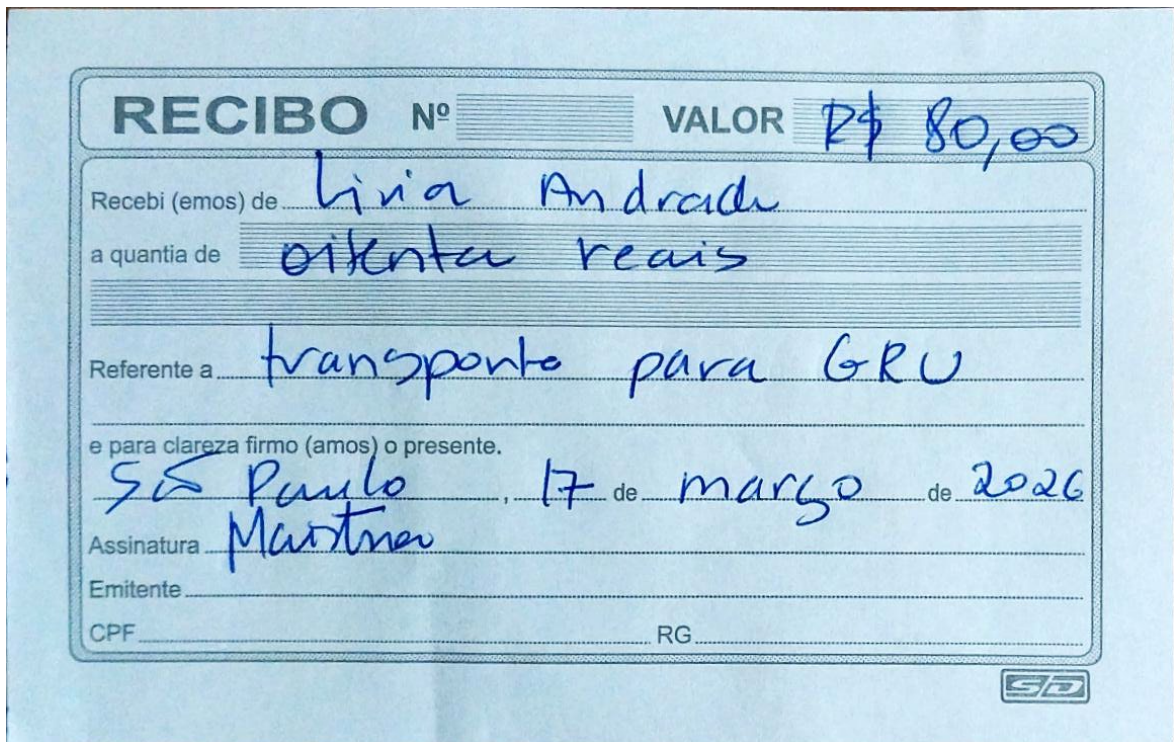 RECIBO Nº VALOR R$ 80,00
Recebi (emos) de Livia Andrade
a quantia de oitenta reais
Referente a transporte para GRU
e para clareza firmo (amos) o presente.
São Paulo, 17 de março de 2026
Assinatura
Emitente
CPF RG
SD